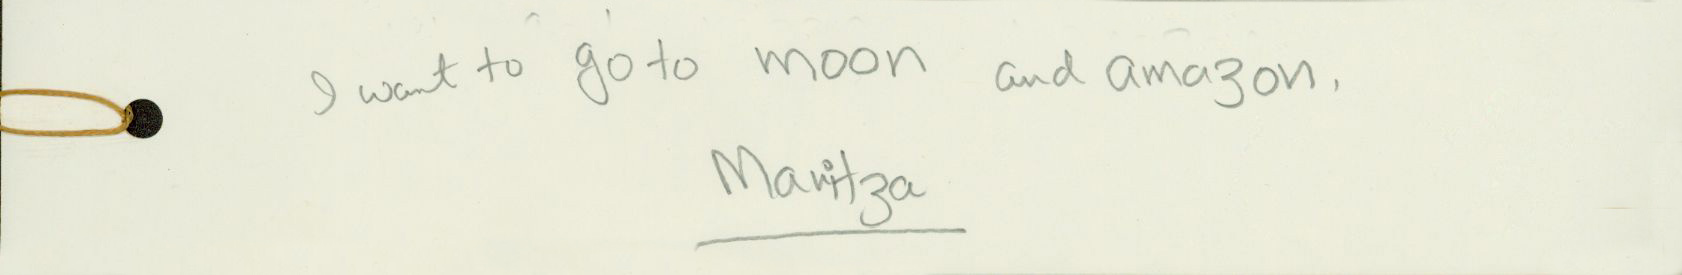 I want to go to moon and amazon.
Maritza